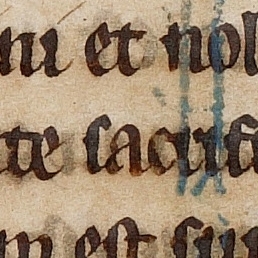 ni et nol
te sacrif
est su